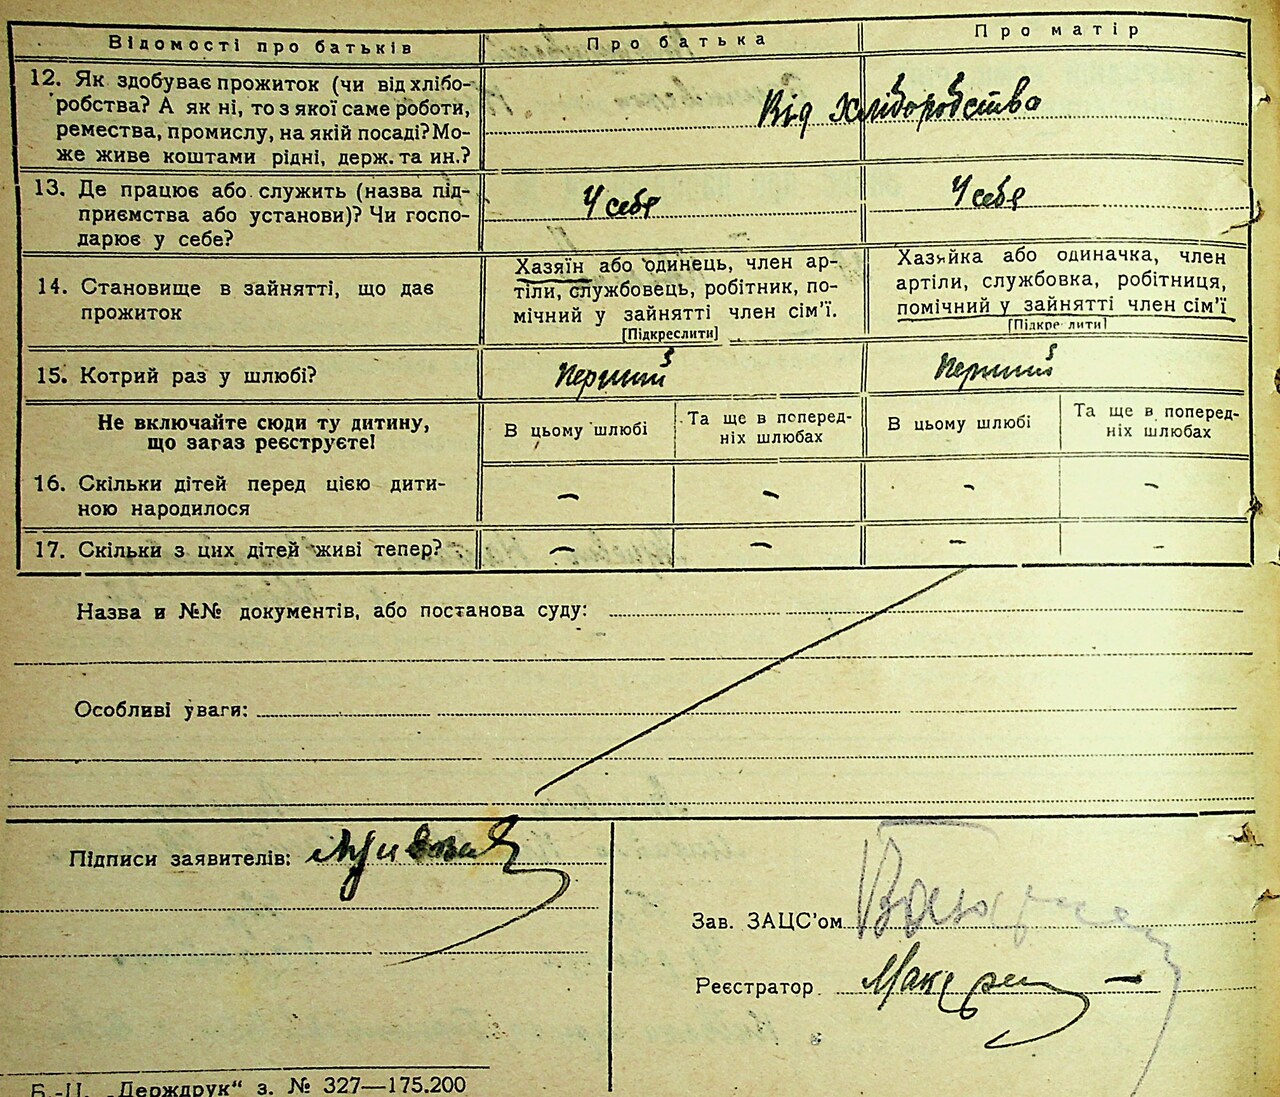 Відомості про батьків
Про батька
Про матір
12. Як здобуває прожиток (чи від хлібо-
робства? А як ні, то з якої саме роботи,
ремества, промислу, на якій посаді? Мо-
же живе коштами рідні, держ. та ин.?
Від хліборобства
13. Де працює або служить (назва під-
приємства або установи)? Чи госпо-
дарює у себе?
У себе
У себе
14. Становище в зайнятті, що дає
прожиток
Хазяїн або одинець, член ар-
тіли, службовець, робітник, по-
мічний у зайнятті член сім'ї.
[Підкреслити]
Хазяйка або одиначка, член
артіли, службовка, робітниця,
помічний у зайнятті член сім'ї
[Підкреслити]
15. Котрий раз у шлюбі?
Перший
Перший
Не включайте сюди ту дитину,
що зараз реєструєте!
В цьому шлюбі
Та ще в поперед-
ніх шлюбах
В цьому шлюбі
Та ще в поперед-
ніх шлюбах
16. Скільки дітей перед цією дити-
ною народилося
–
–
–
–
17. Скільки з цих дітей живі тепер?
–
–
–
–
Назва и №№ документів, або постанова суду:
Особливі уваги:
Підписи заявителів:
Зав. ЗАЦС'ом
Реєстратор
Б.-Ц. „Держдрук“ з. № 327—175.200